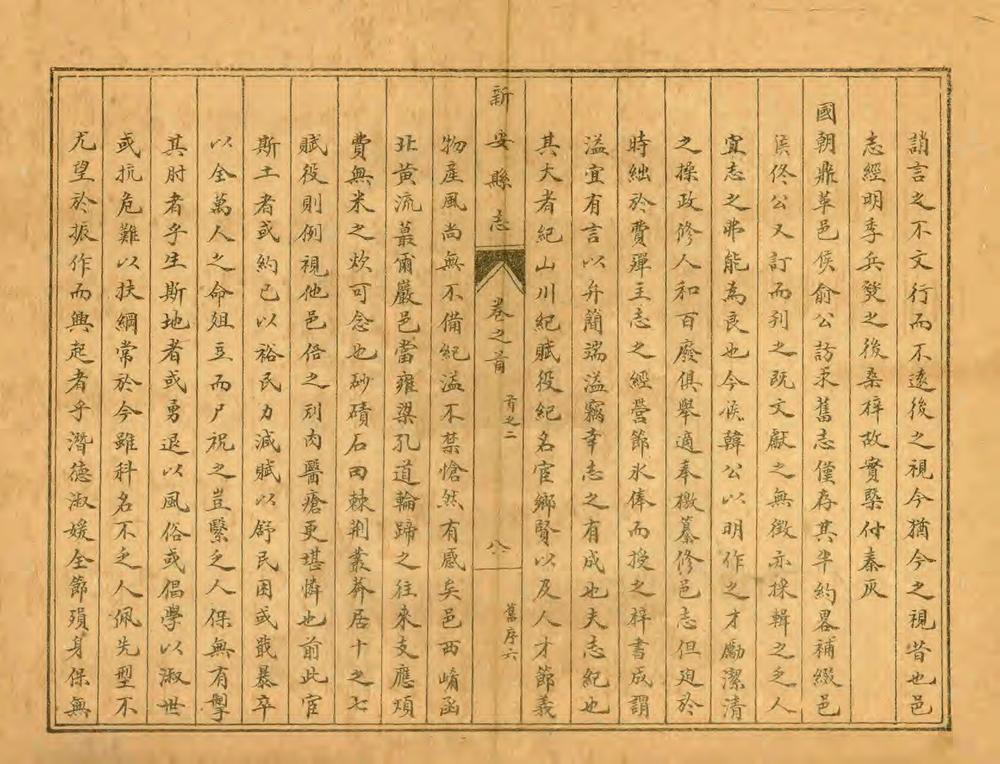 誚言之不文行而不遠後之視今猶今之視昔也邑
志經明季兵燹之後桑梓故實槩付秦灰
國朝鼎革邑侯俞公訪求舊志僅存其半約畧補綴邑
侯佟公又訂而刊之既文獻之無徵亦採輯之乏人
宜志之弗能為良也今侯韓公以明作之才勵潔清
之操政修人和百廢俱舉適奉檄纂修邑志但迫於
時絀於費殫主志之經營節氷俸而授之梓書成謂
溢宜有言以弁簡端溢竊幸志之有成也夫志紀也
其大者紀山川紀賦役紀名宦鄉賢以及人才節義
新安縣志 卷之首 首之二 八 舊序六
物產風尚無不備紀溢不禁愴然有感矣邑西崤函
北黃流蕞爾巖邑當雍梁孔道輪蹄之往來支應煩
費無米之炊可念也砂磧石田棘荆叢莽居十之七
賦役則例視他邑倍之剜肉醫瘡更堪憐也前此宦
斯土者或約己以裕民力減賦以舒民困或戢暴卒
以全萬人之命俎豆而尸祝之豈緊乏人保無有掣
其肘者乎生斯地者或勇退以風俗或倡學以淑世
或抗危難以扶綱常於今雖科名不乏人佩先型不
尤望於振作而興起者乎潛德淑媛全節殞身保無